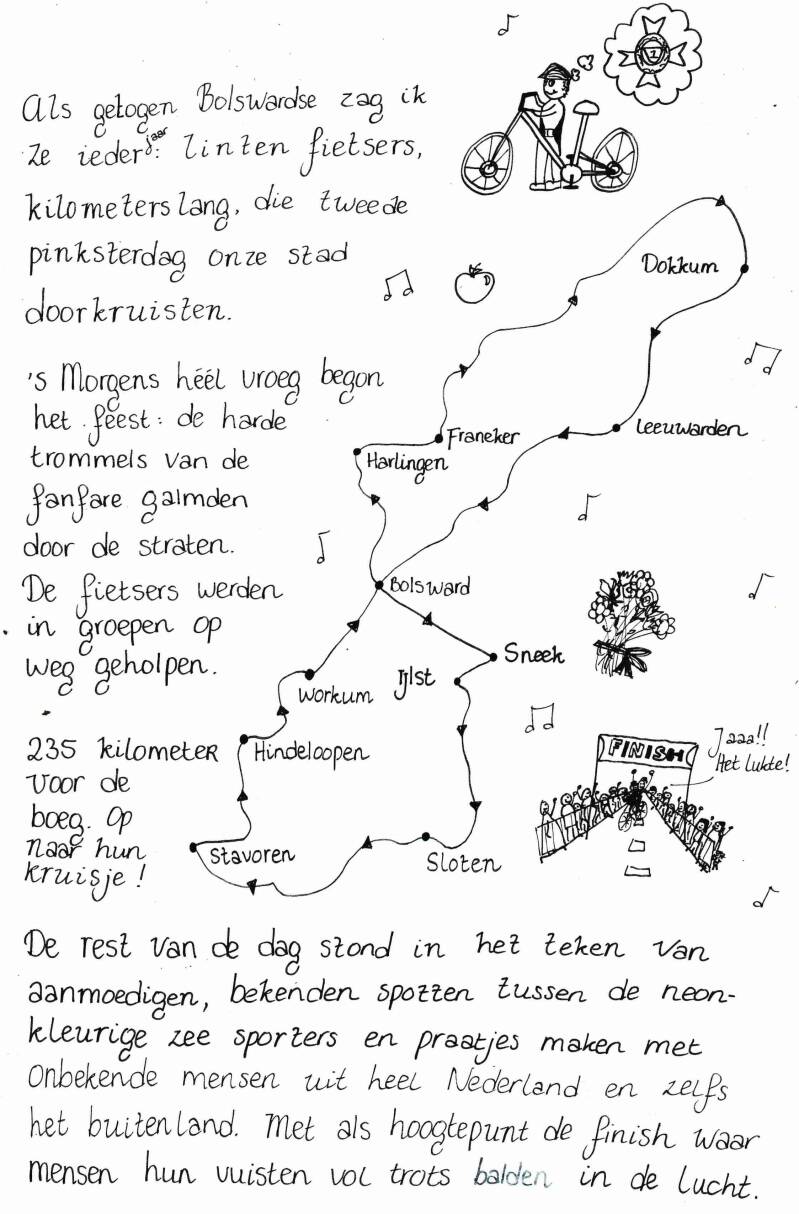 Als getogen Bolswardse zag ik
ze ieder jaar: linten fietsers,
kilometers lang, die tweede
pinksterdag onze stad
doorkruisten.
Dokkum
's Morgens héél vroeg begon
het feest: de harde
trommels van de
fanfare galmden
door de straten.
Franeker
Leeuwarden
Harlingen
De fietsers werden
in groepen op
weg geholpen.
Bolsward
Sneek
IJlst
Workum
235 kilometer
voor de
boeg. Op
naar hun
kruisje!
Hindeloopen
Stavoren
Sloten
FINISH
Jaaa!!
Het lukte!
De rest van de dag stond in het teken van
aanmoedigen, bekenden spotten tussen de neon-
kleurige zee sporters en praatjes maken met
onbekende mensen uit heel Nederland en zelfs
het buitenland. Met als hoogtepunt de finish waar
mensen hun vuisten vol trots balden in de lucht.